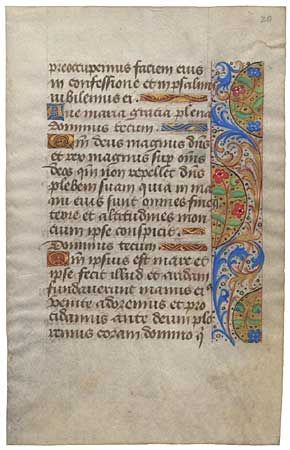 20
preoccupemus faciem eius
in confessione et in psalmis
iubilemus ei.
Aue maria gracia plena
dominus tecum
Qm̄ deus magnus dn̄s
et rex magnus sup om̄s
deos qm̄ non repellet dn̄s
plebem suam quia in ma
nu eius sunt omnes fines
terre et altitudines mon
cium ipse conspicit
Dominus tecum
Qm̄ ipsius est mare et
ipse fecit illud et aridam
fundauerunt manus ei
venite adoremus et pro
cidamus ante deum plo
remus coram domino q̄